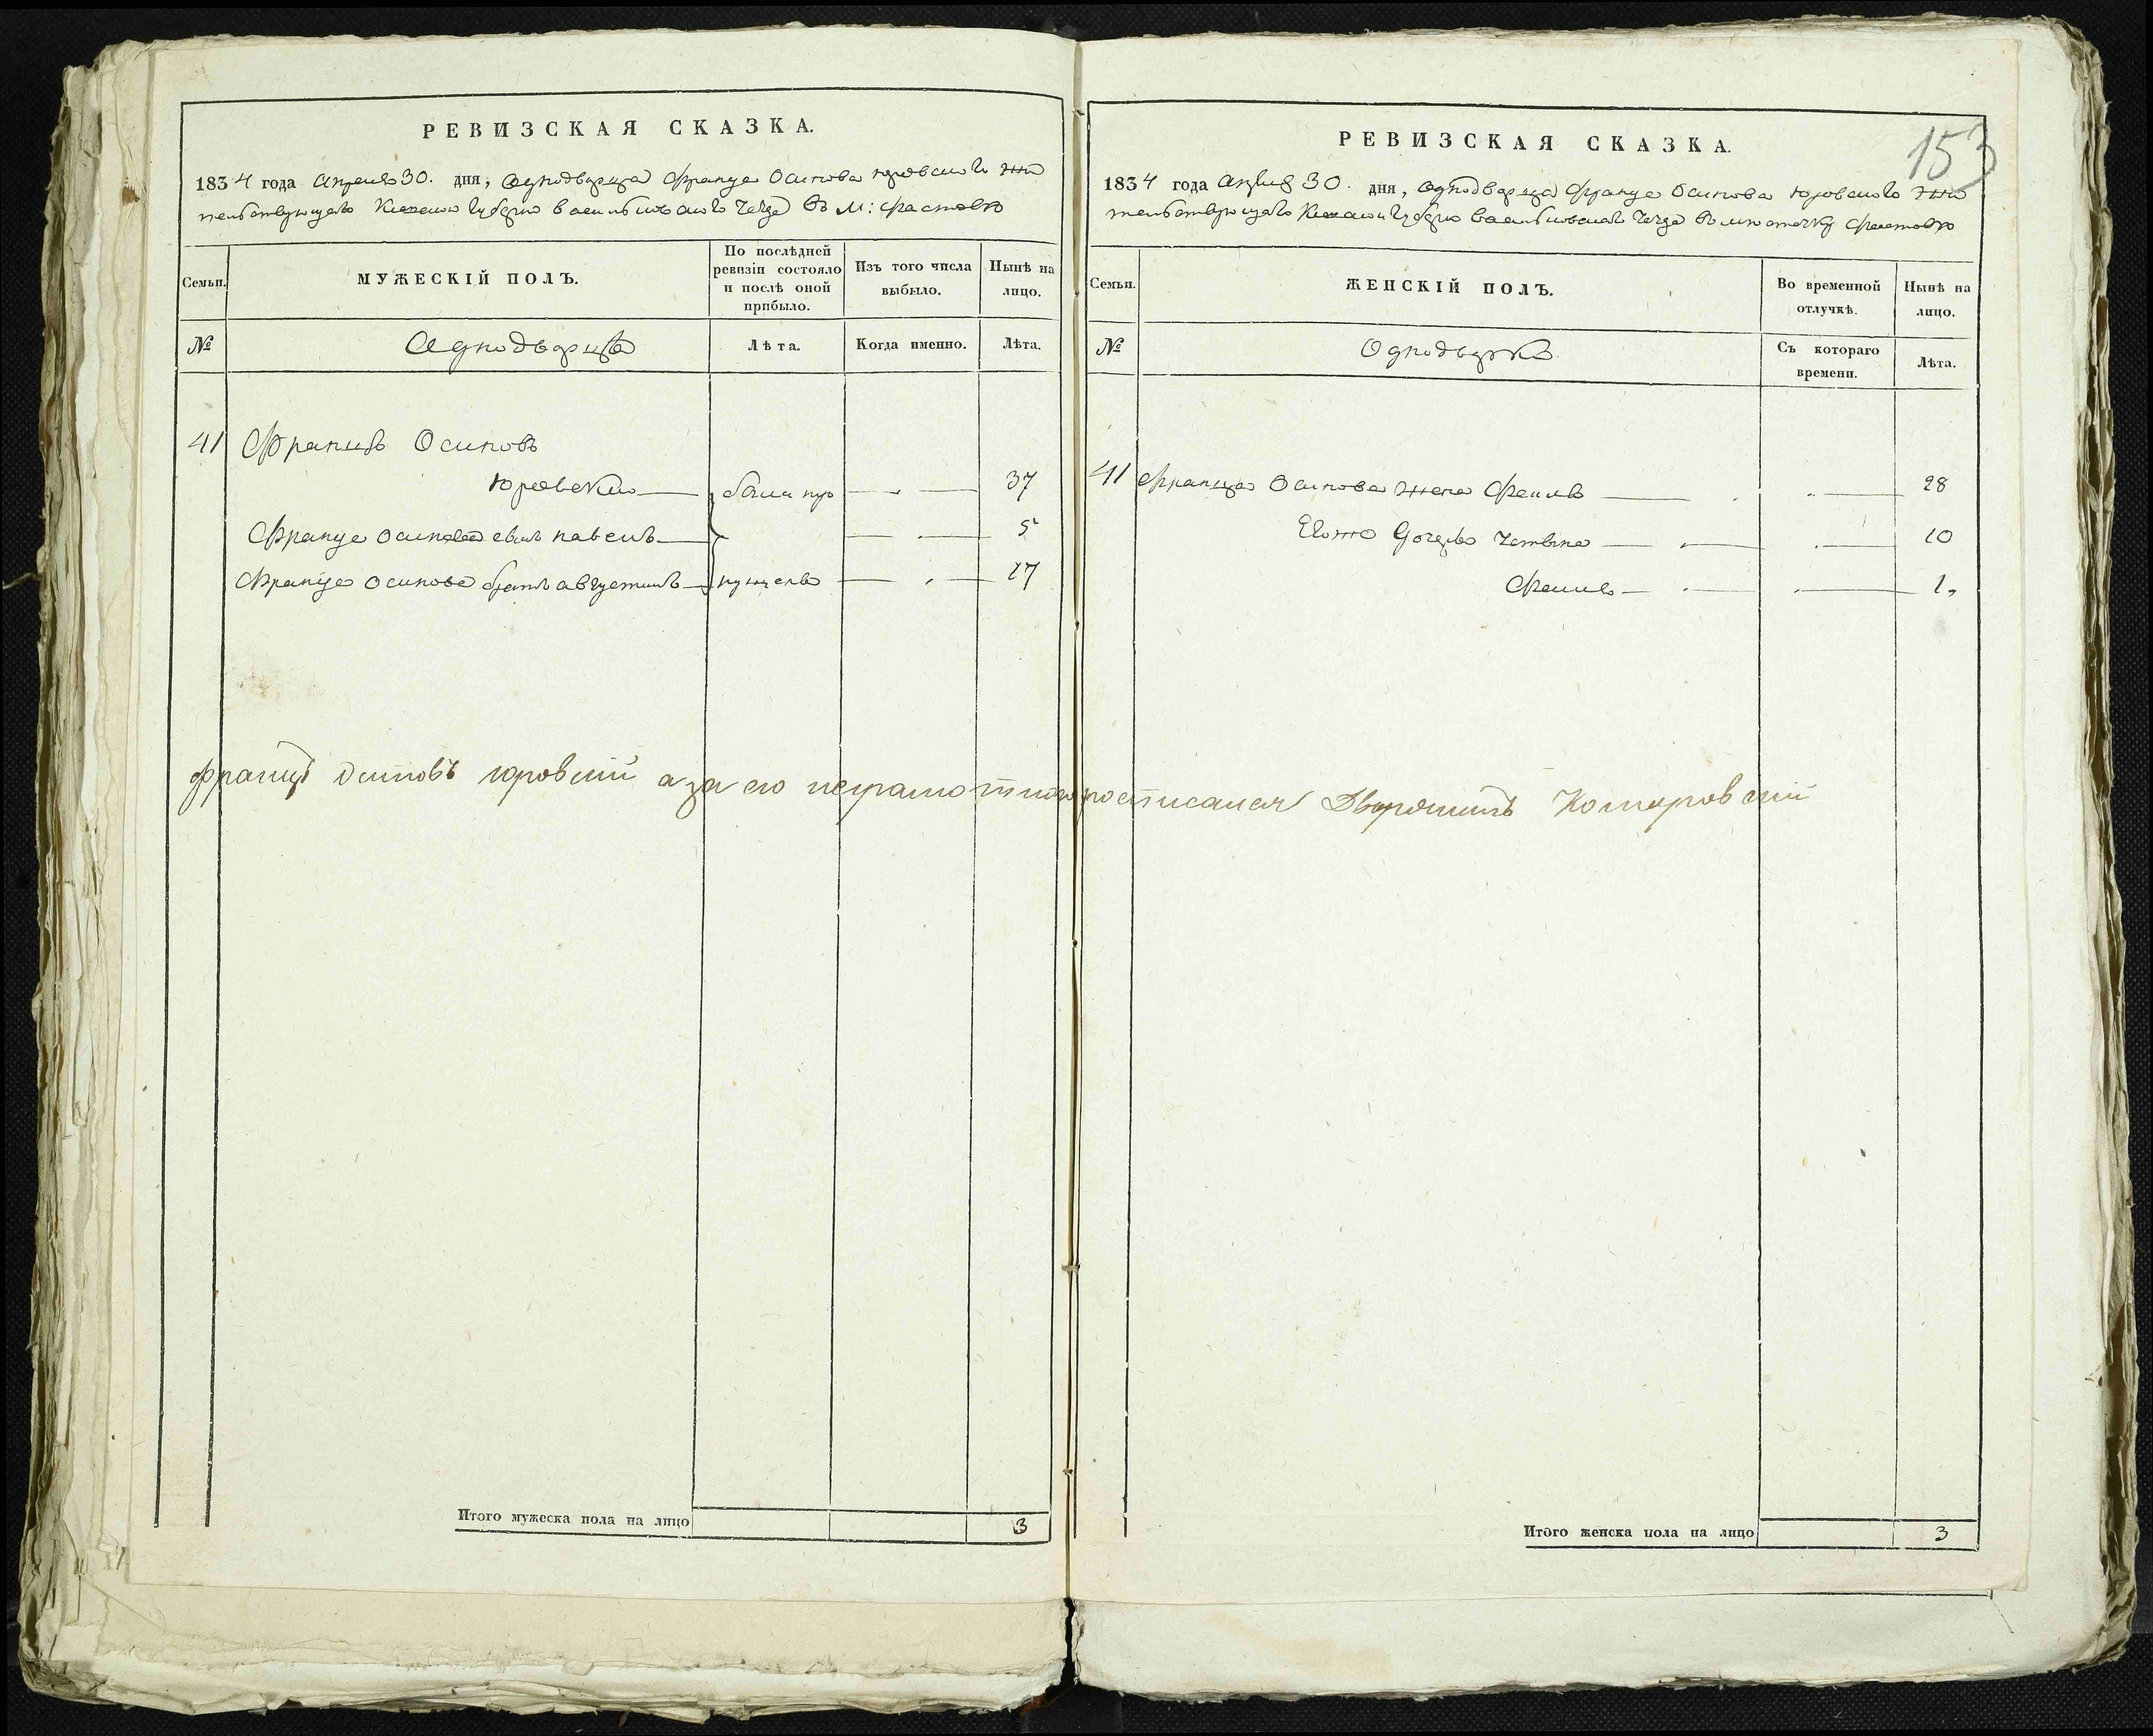 РЕВИЗСКАЯ СКАЗКА.
1834 года Апреля 30. дня, Однодворца Франца Осипова Юровского жи
тельствующего Киевской губернии Васильковского уезда в М: Фастове
Семьи.
МУЖЕСКІЙ ПОЛЪ.
По послѣдней ревизіи состояло и послѣ оной прибыло.
Изъ того числа выбыло.
Нынѣ на лицо.
№
Однодворцы
Лѣта.
Когда именно.
Лѣта.
41 Францъ Осиповъ
Юровский 37
Франца Осипова сынъ Павелъ 5
Франца Осипова братъ Августинъ 27
Францъ Осиповъ Юровский а за его неграмотного росписался Дворянинъ Комаровский
Итого мужеска пола на лицо 3
153
РЕВИЗСКАЯ СКАЗКА.
1834 года Апреля 30. дня, Однодворца Франца Осипова Юровского жи
тельствующего Киевской губернии Васильковского уезда в местечку Фастове
Семьи.
ЖЕНСКІЙ ПОЛЪ.
Во временной отлучкѣ.
Нынѣ на лицо.
№
Однодворки
Съ котораго времени.
Лѣта.
41 Франца Осипова жена 28
Его дочерь 10
1
Итого женска пола на лицо 3